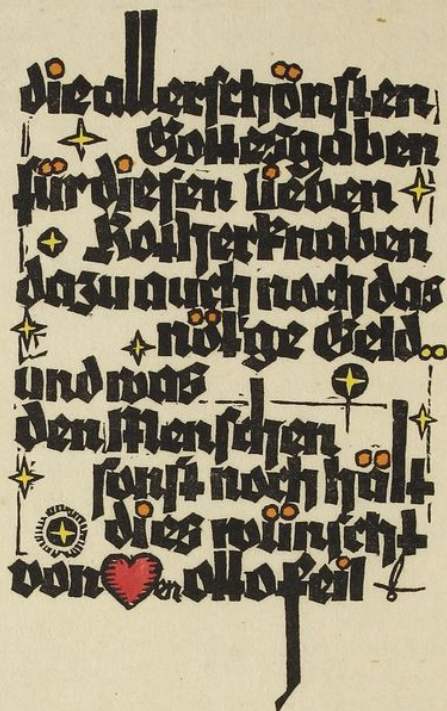 die allerschönsten
Gottesgaben
für diesen lieben
Rotherknaben
dazu auch noch das
nötge Geld..
und was
den Menschen
sonst noch hält
dies wünscht
von ❤en otto feil